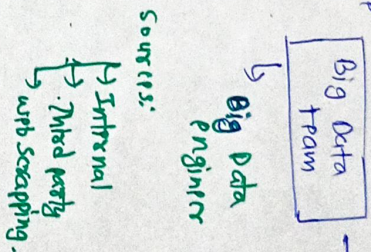 Big Data
team
↳ Big Data
engineer
Sources:
↳ Internal
↳ Third party
↳ web scrapping.